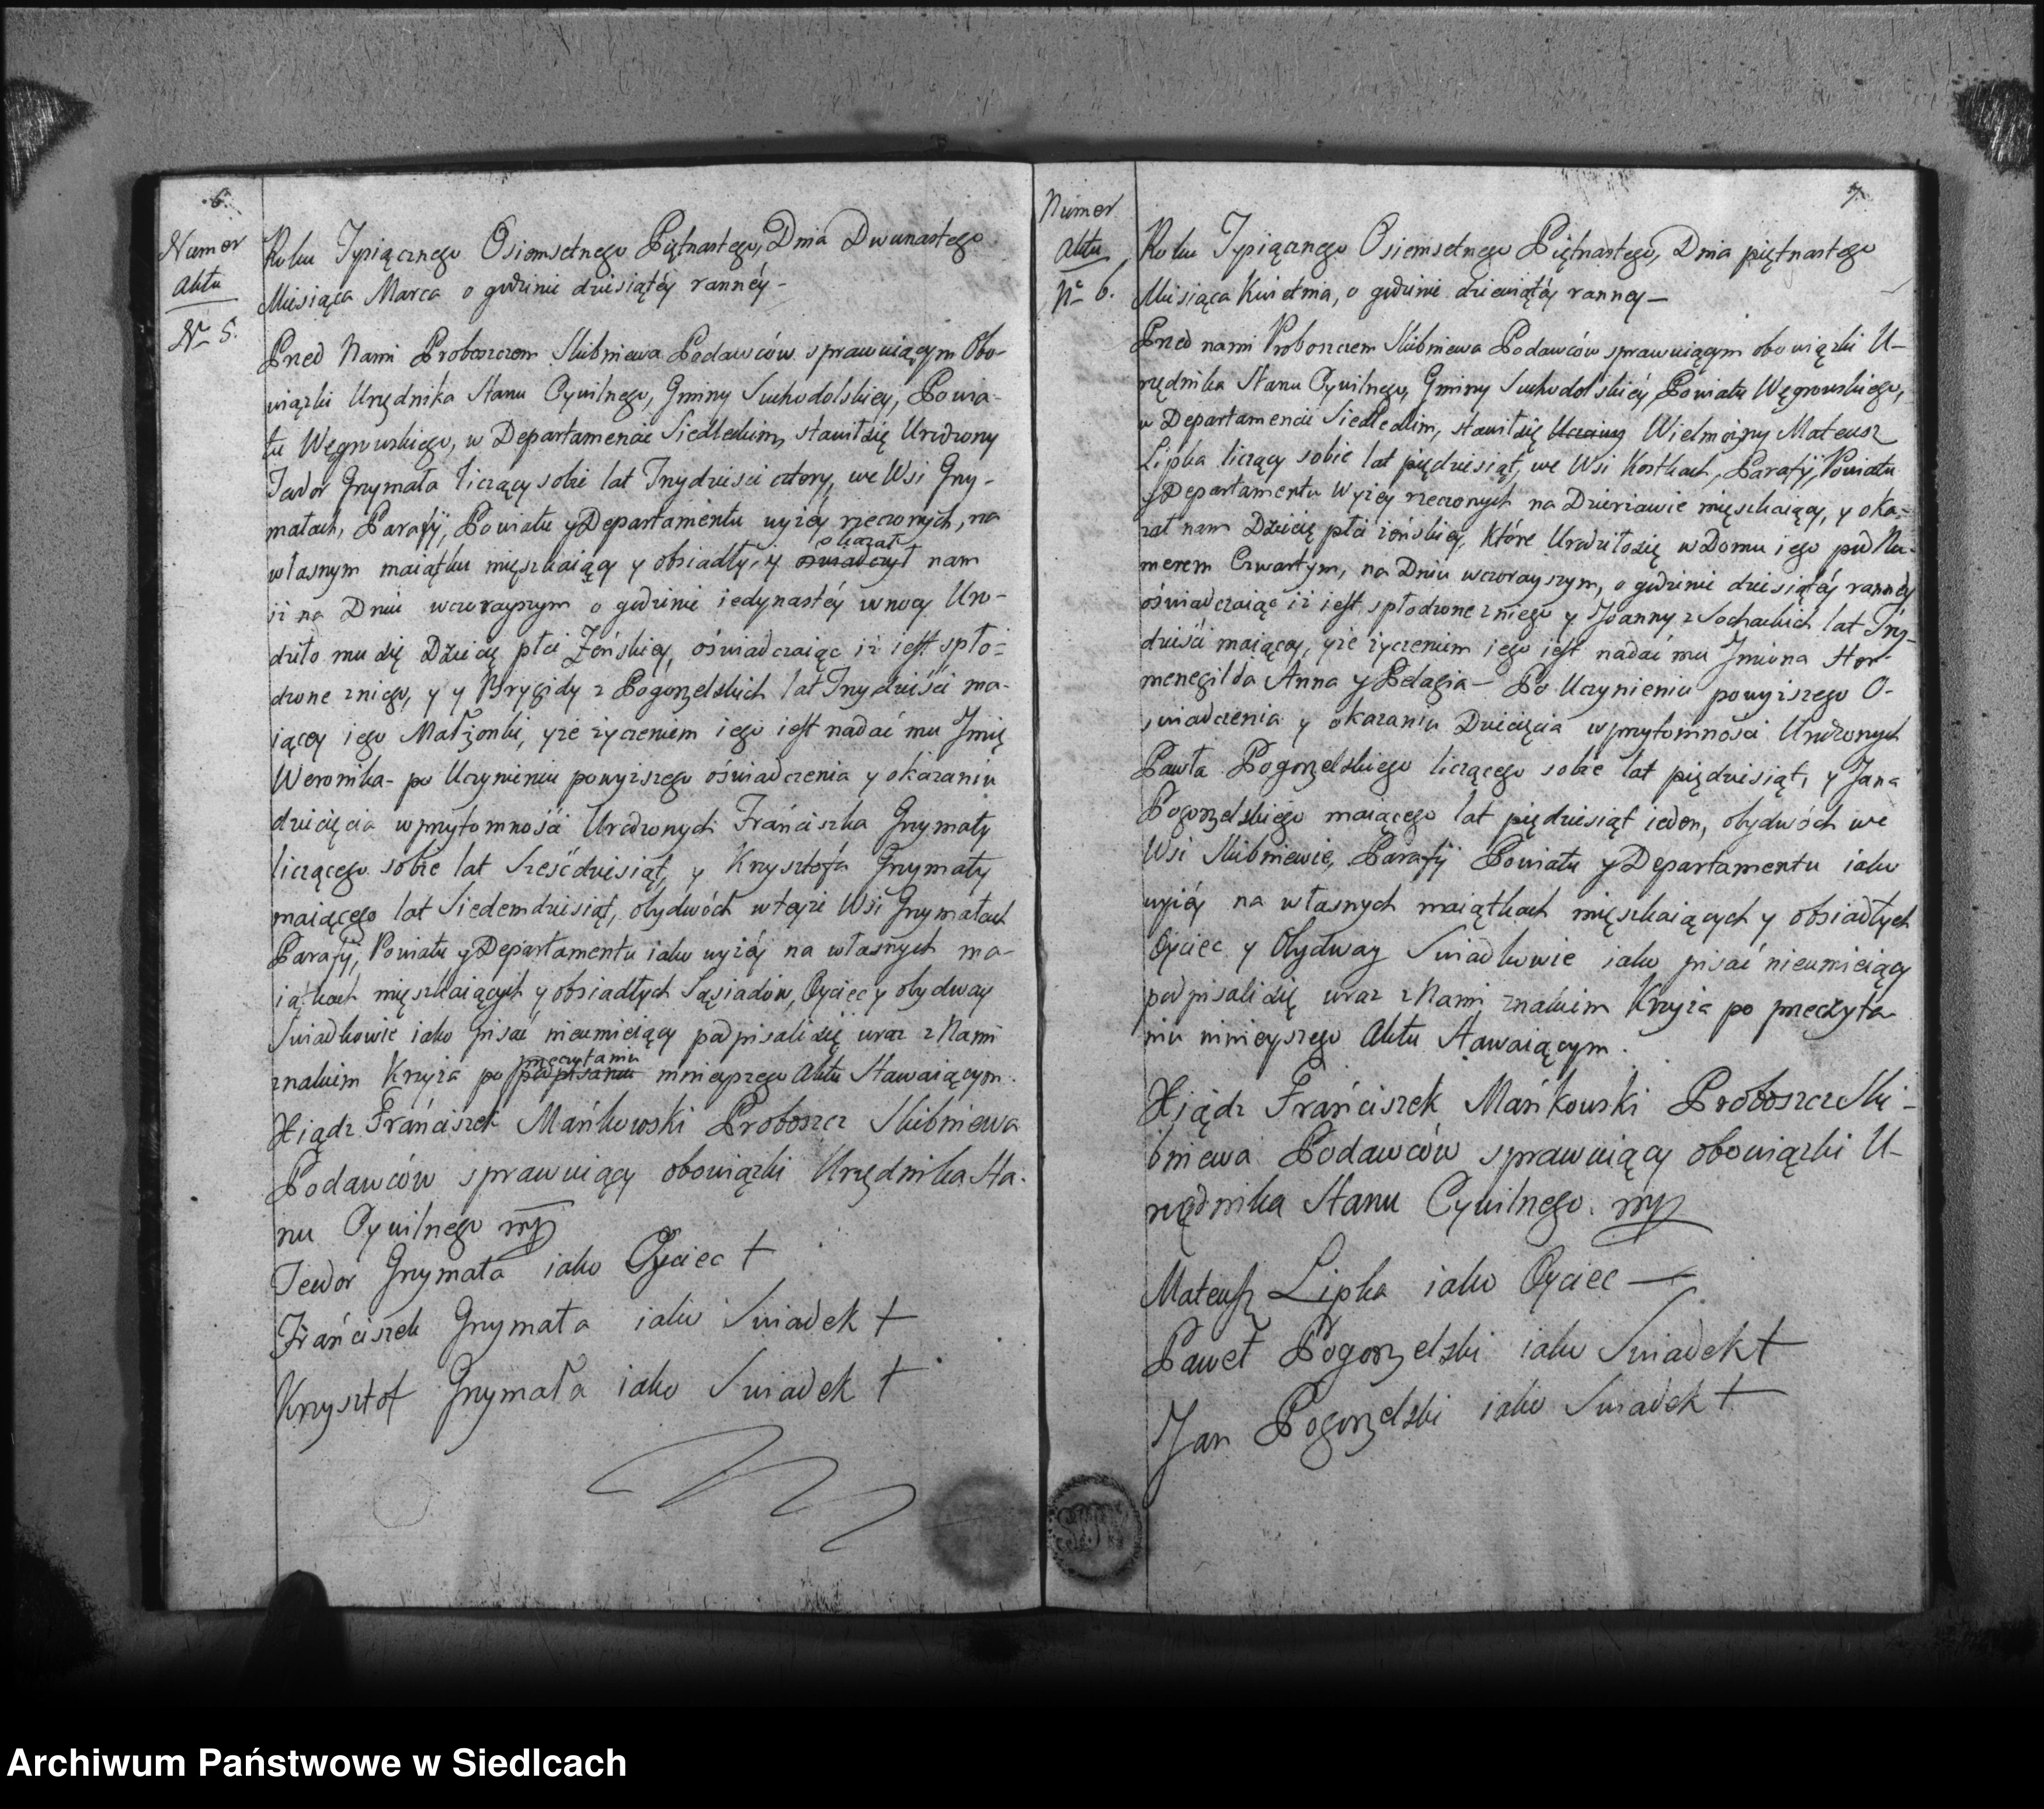 6.
Numer
Aktu
Nr 5.
Roku Tysiącznego Osiemsetnego Piętnastego, Dnia Dwunastego
Miesiąca Marca o godzinie dziesiątéy rannéy –
Przed Nami Proboszczem Skibniewa Podawców sprawuiącym Obo-
wiązki Urzędnika Stanu Cywilnego, Gminy Suchodolskiey, Powia-
tu Węgrowskiego, w Departamencie Siedleckim, stawił się Urodzony
Teodor Grzymała liczący sobie lat Trzydzieści cztery, we Wsi Grzy-
małach, Parafij, Powiatu y Departamentu wyżéy rzeczonych, na
własnym maiątku mięszkaiący y obsiadły, y oświadczył okazał nam
iż na Dniu wczorayszym o godzinie iedynastéy w nocy Uro-
dziło mu się Dziecię płci Żeńskiey, oświadczaiąc iż iest spło-
dzone z niego, y y Brygidy z Pogorzelskich lat Trzydzieści ma-
iącey iego Małżonki, y że życzeniem iego iest nadać mu Jmię
Weronika – po Uczynieniu powyższego oświadczenia y okazaniu
dziecięcia w przytomności Urodzonych Frańciszka Grzymały
liczącego sobie lat Sześćdziesiąt, y Krzysztofa Grzymały
maiącego lat Siedemdziesiąt, obydwóch w teyże Wsi Grzymałach
Parafij, Powiatu y Departamentu iako wyżéy na własnych ma-
iątkach mięszkaiących y obsiadłych Sąsiadów, Oyciec y obydway
Swiadkowie iako pisać nieumieiący podpisali się wraz z Nami
znakiem Krzyża po podpisaniu przeczytaniu ninieyszego Aktu Stawaiącym.
Xiądz Frańciszek Mańkowski Proboszcz Skibniewa
Podawców sprawuiący obowiązki Urzędnika Sta-
nu Cywilnego mp
Teodor Grzymała iako Oyciec +
Frańciszek Grzymała iako Swiadek +
Krzysztof Grzymała iako Swiadek +
7.
Numer
Aktu
No 6.
Roku Tysiącznego Osiemsetnego Piętnastego, Dnia piętnastego
Miesiąca Kwietnia, o godzinie dziewiątéy ranney –
Przed nami Proboszczem Skibniewa Podawców sprawuiącym obowiązki U-
rzędnika Stanu Cywilnego, Gminy Suchodolskiéy, Powiatu Węgrowskiego,
w Departamencie Siedleckim, stawił się Uczciwy Wielmożny Mateusz
Lipka liczący sobie lat piędziesiąt, we Wsi Kostkach, Parafij, Powiatu
y Departamentu Wyżey rzeczonych na Dzierżawie mięszkaiący, y oka-
zał nam Dziecię płci żeńskiey, Które Urodziło się w Domu iego pod Nu-
merem Czwartym, na Dniu wczorayszym, o godzinie dziesiątéy rannéy
oświadczaiąc iż iest spłodzone z niego y Joanny z Sochackich lat Trzy-
dzieści maiącey, y że życzeniem iego iest nadać mu Jmiona Hor-
menegilda Anna y Pelagia – Po Uczynieniu powyższego O-
świadczenia y okazaniu Dziecięcia w przytomności Urodzonych
Pawła Pogorzelskiego liczącego sobie lat piędziesiąt, y Jana
Pogorzelskiego maiącego lat piędziesiąt ieden, obydwóch we
Wsi Skibniewie, Parafij Powiatu y Departamentu iako
wyżéy na własnych maiątkach mięszkaiących y obsiadłych
Oyciec y Obydway Swiadkowie iako pisać nieumieiący
podpisali się wraz z Nami znakiem Krzyża po przeczyta
niu ninieyszego Aktu Stawaiącym.
Xiądz Frańciszek Mańkowski Proboszcz Ski-
bniewa Podawców sprawuiący obowiązki U-
rzędnika Stanu Cywilnego. mp
Mateusz Lipka iako Oyciec —
Paweł Pogorzelski iako Swiadek +
Jan Pogorzelski iako Swiadek +
Archiwum Państwowe w Siedlcach